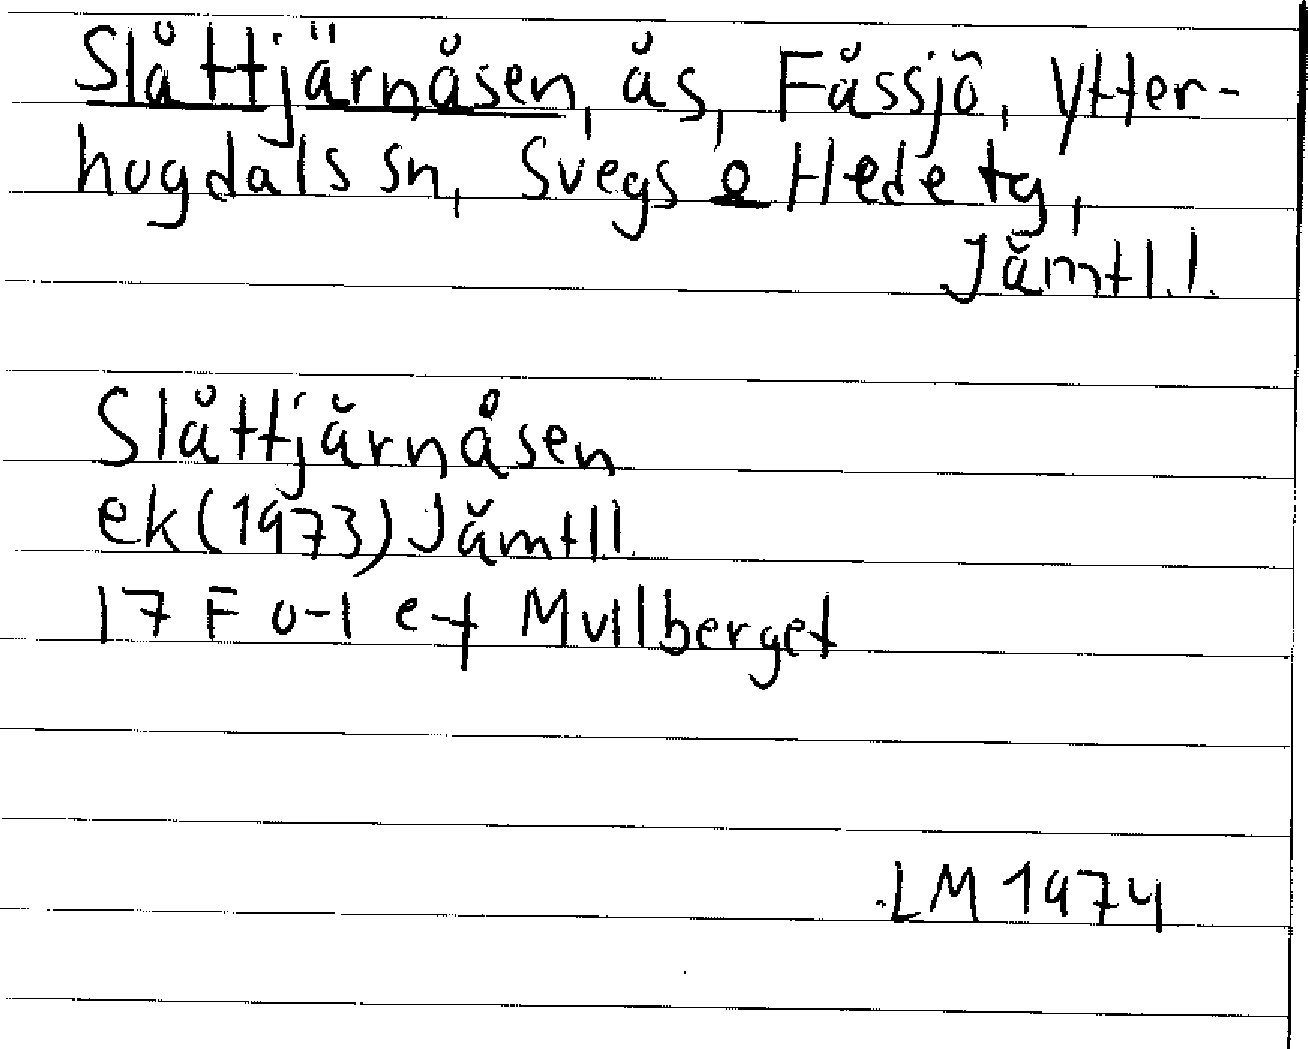 Slåttjärnåsen, ås, Fåssjö, Ytter-
hogdals sn, Svegs o Hede tg,
Jämtl.l.
Slåttjärnåsen
ek (1973) Jämtl.l.
17 F 0-1 e-f Mullberget
LM 1974